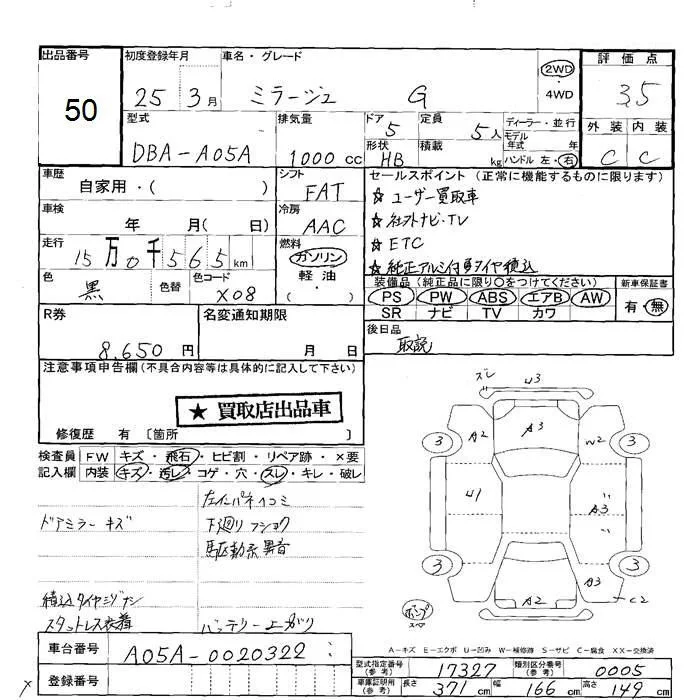 出品番号
50
初度登録年月
25 3月
車名・グレード
ミラージュ G
2WD
・4WD
評価点
3.5
外装 内装
C C
型式
DBA-A05A
排気量
1000 cc
ドア
5
定員
5人
形状
HB
積載
kg
ディーラー・並行
モデル年式 年
ハンドル 左・右
車歴
自家用・( )
シフト
FAT
車検
年 月( 日)
冷房
AAC
走行
15万0千565km
燃料
ガソリン
軽油・
( )
色
黒
色替
色コード
X08
セールスポイント(正常に機能するものに限ります)
☆ ユーザー買取車
☆ 社外ナビ・TV
☆ ETC
☆ 純正アルミ付夏タイヤ積込
装備品(純正品に限り○をつけてください)
PS PW ABS エアB AW
SR ナビ TV カワ
新車保証書
有・無
後日品
取説
R券
8,650円
名変通知期限
月 日
注意事項申告欄(不具合内容等は具体的に記入して下さい)
★ 買取店出品車
修復歴 有 〔箇所 〕
検査員記入欄
FW キズ・飛石・ヒビ割・リペア跡・×要
内装 キズ・汚レ・コゲ・穴・スレ・キレ・破レ
左インパネイコミ
ドアミラーキズ
下廻りフショク
駆動系異音
積込タイヤミゾナシ
スタットレス装着
バッテリーエーガリ
ズレ U3
A2 A3 W2
3 3
U1 A3
3 3
A3
A2 C2
ポンプ
スペア
A-キズ E-エクボ U-凹み W-補修跡 S-サビ C-腐食 XX-交換済
車台番号
A05A-0020322
登録番号
型式指定番号(参考)
17327
類別区分番号(参考)
0005
車庫証明用(参考)
長さ 371cm
幅 166cm
高さ 149cm